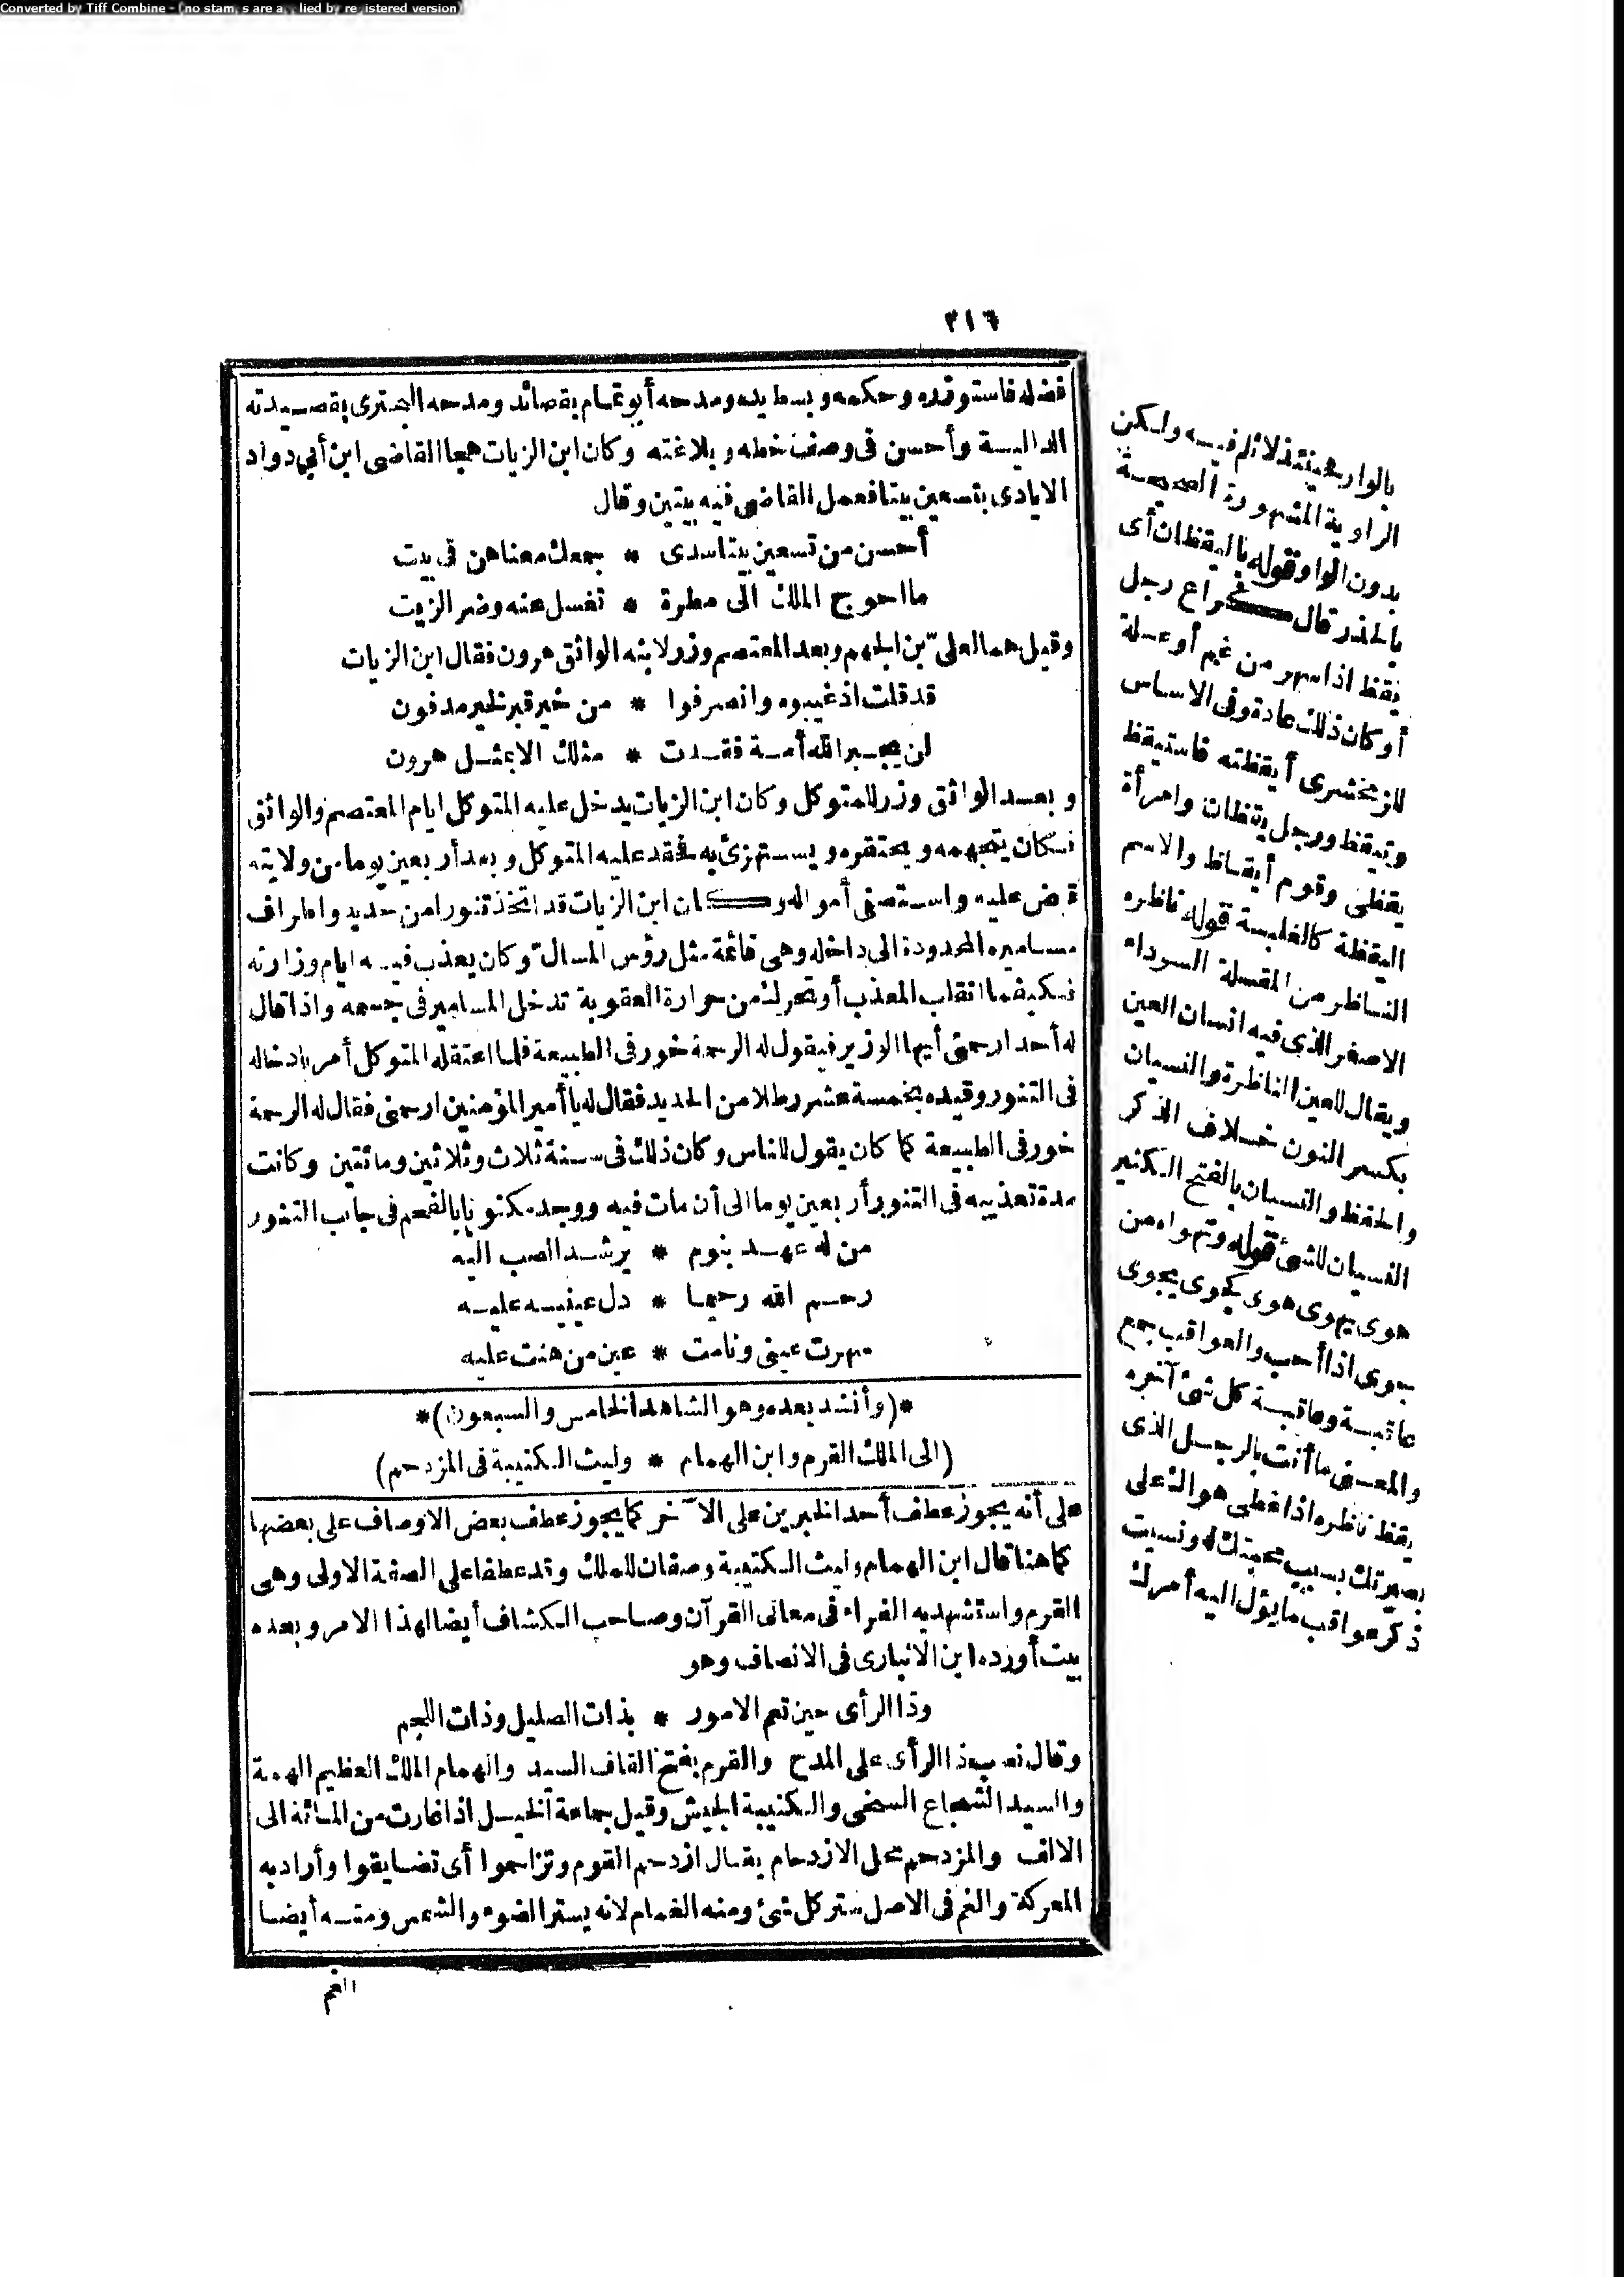 Converted by Tiff Combine - (no stamps are applied by registered version)
٢١٦
فضله فاستوزره وحكمه وبسط يده ومدحه أبو تمام بقصائد ومدحه البحترى بقصيدته
الدالية وأحسن فى وصف خطه وبلاغته وكان ابن الزيات هجا القاضى ابن أبي دواد
الايادى بتسعين بيتا فعمل القاضى فيه بيتين وقال
أحسن من تسعين بيتا سدى * جمعك معناهن فى بيت
ما احوج الملك الى مطرة * تغسل عنه وضر الزيت
وقيل هما لعلىّ بن الجهم وبعد المعتصم وزر لابنه الواثق هرون فقال ابن الزيات
قد قلت اذ غيبوه وانصرفوا * من خير قبر لخير مدفون
لن يجبر الله أمة فقدت * مثلك الا بمثل هرون
وبعد الواثق وزر للمتوكل وكان ابن الزيات يدخل عليه المتوكل ايام المعتصم والواثق
فكان يتجهمه ويحتقره ويستهزئ به فحقد عليه المتوكل وبعد أربعين يوما من ولايته
قبض عليه واستصفى أمواله وكان ابن الزيات قد اتخذ تنورا من حديد واطراف
مساميره المحدودة الى داخله وهى قائمة مثل رؤس المسالّ وكان يعذب فيه ايام وزارته
فكيفما انقلب المعذب أو تحرك من حرارة العقوبة تدخل المسامير فى جسمه واذا قال
له أحد ارحمنى أيها الوزير فيقول له الرحمة خور فى الطبيعة فلما اعتقله المتوكل أمر بادخاله
فى التنور وقيده بخمسة عشر رطلا من الحديد فقال له يا أمير المؤمنين ارحمنى فقال له الرحمة
خور فى الطبيعة كما كان يقول للناس وكان ذلك فى سنة ثلاث وثلاثين ومائتين وكانت
مدة تعذيبه فى التنور أربعين يوما الى أن مات فيه ووجد مكتوبا بالفحم فى جانب التنور
من له عهد بنوم * يرشد الصب اليه
رحم الله رحيما * دل عينيه عليه
سهرت عينى ونامت * عين من هنت عليه
*(وأنشد بعده وهو الشاهد الخامس والسبعون)*
(الى الملك القرم وابن الهمام * وليث الكتيبة فى المزدحم)
على أنه يجوز عطف أحد الخبرين على الآخر كما يجوز عطف بعض الاوصاف على بعضها
كما هنا قال ابن الهمام وليث الكتيبة وصفان للملك وقد عطفا على الصفة الاولى وهى
القرم واستشهد به الفراء فى معانى القرآن وصاحب الكشاف أيضا لهذا الامر وبعده
بيت أورده ابن الانبارى فى الانصاف وهو
وذا الرأى حين تغم الامور * بذات الصليل وذات اللجم
وقال نصب ذا الرأى على المدح والقرم بفتح القاف السيد والهمام الملك العظيم الهمة
والسيد الشجاع السخى والكتيبة الجيش وقيل جماعة الخيل اذا غارت من المائة الى
الالف والمزدحم محل الازدحام يقال ازدحم القوم وتزاحموا أى تضايقوا وأراد به
المعركة والغم فى الاصل ستر كل شئ ومنه الغمام لانه يستر الضوء والشمس ومنه أيضا
الغم
بالوار فحينئذ لا ثلم فيه ولكن
الراوية المشهورة الصحيحة
بدون الواو قوله فاليقظان أى
بالحذر قال كراع رجل
يقظ اذا سهر من غم أو علة
أو كان ذلك عادة وفى الاساس
للزمخشرى أيقظته فاستيقظ
وتيقظ ورجل يقظان وامرأة
يقظى وقوم أيقاظ والاسم
اليقظة كالغلبة قوله ناظره
الناظر من المقلة السوداء
الاصغر الذى فيه انسان العين
ويقال للعين الناظرة والنسيان
بكسر النون خلاف الذكر
والحفظ والنسيان بالفتح الكثير
النسيان للشئ قوله وتهواه من
هوى يهوى هوى كجوى يجوى
جوى اذا أحب والعواقب جمع
عاقبة وعاقبة كل شئ آخره
والمعنى ما أنت بالرجل الذى
يقظ ناظره اذا غطى هواك على
بصيرتك بسبب محبتك له ونسيت
ذكر عواقب ما يؤل اليه أمرك